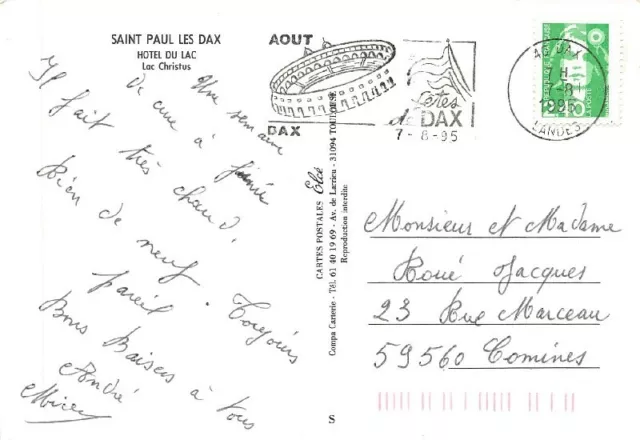 SAINT PAUL LES DAX
HOTEL DU LAC
Lac Christus
Une semaine
de cure à
Il fait très chaud.
Rien de neuf. Toujours
pareil
Bons Baisers à tous
André
AOUT
DAX
Fêtes
de DAX
7-8-95
AG. DAX
7 H
7-8
1995
LANDES
CARTES POSTALES Elcé
Compa Carterie - Tél. 61 40 19 69 - Av. de Larrieu - 31094 TOULOUSE
Reproduction interdite
S
Monsieur et Madame
Roué Jacques
23 Rue Marceau
59560 Comines